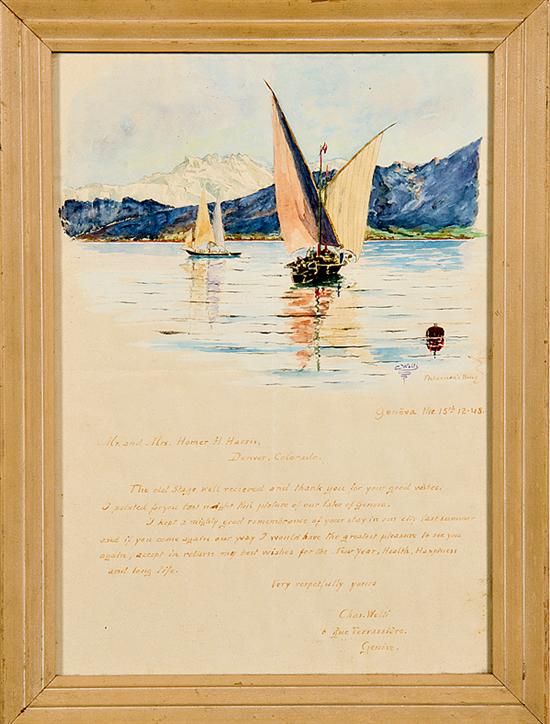 C. Welti
Fisherman's Buoy
Genèva the 15th 12-48.
Mr. and Mrs. Homer H Harris,
Denver, Colorado.
The old Stage well recieved and thank you for your good wishes.
I painted for you last night this picture of our lake of Geneva.
I kept a mighty good remembrance of your stay in our city last summer
and if you come again our way I would have the greatest pleasure to see you
again, accept in return my best wishes for the New Year, Health, Happiness
and long life.
Very respetfully yours
Chas. Welti
6 Rue Terrassière.
Genève.